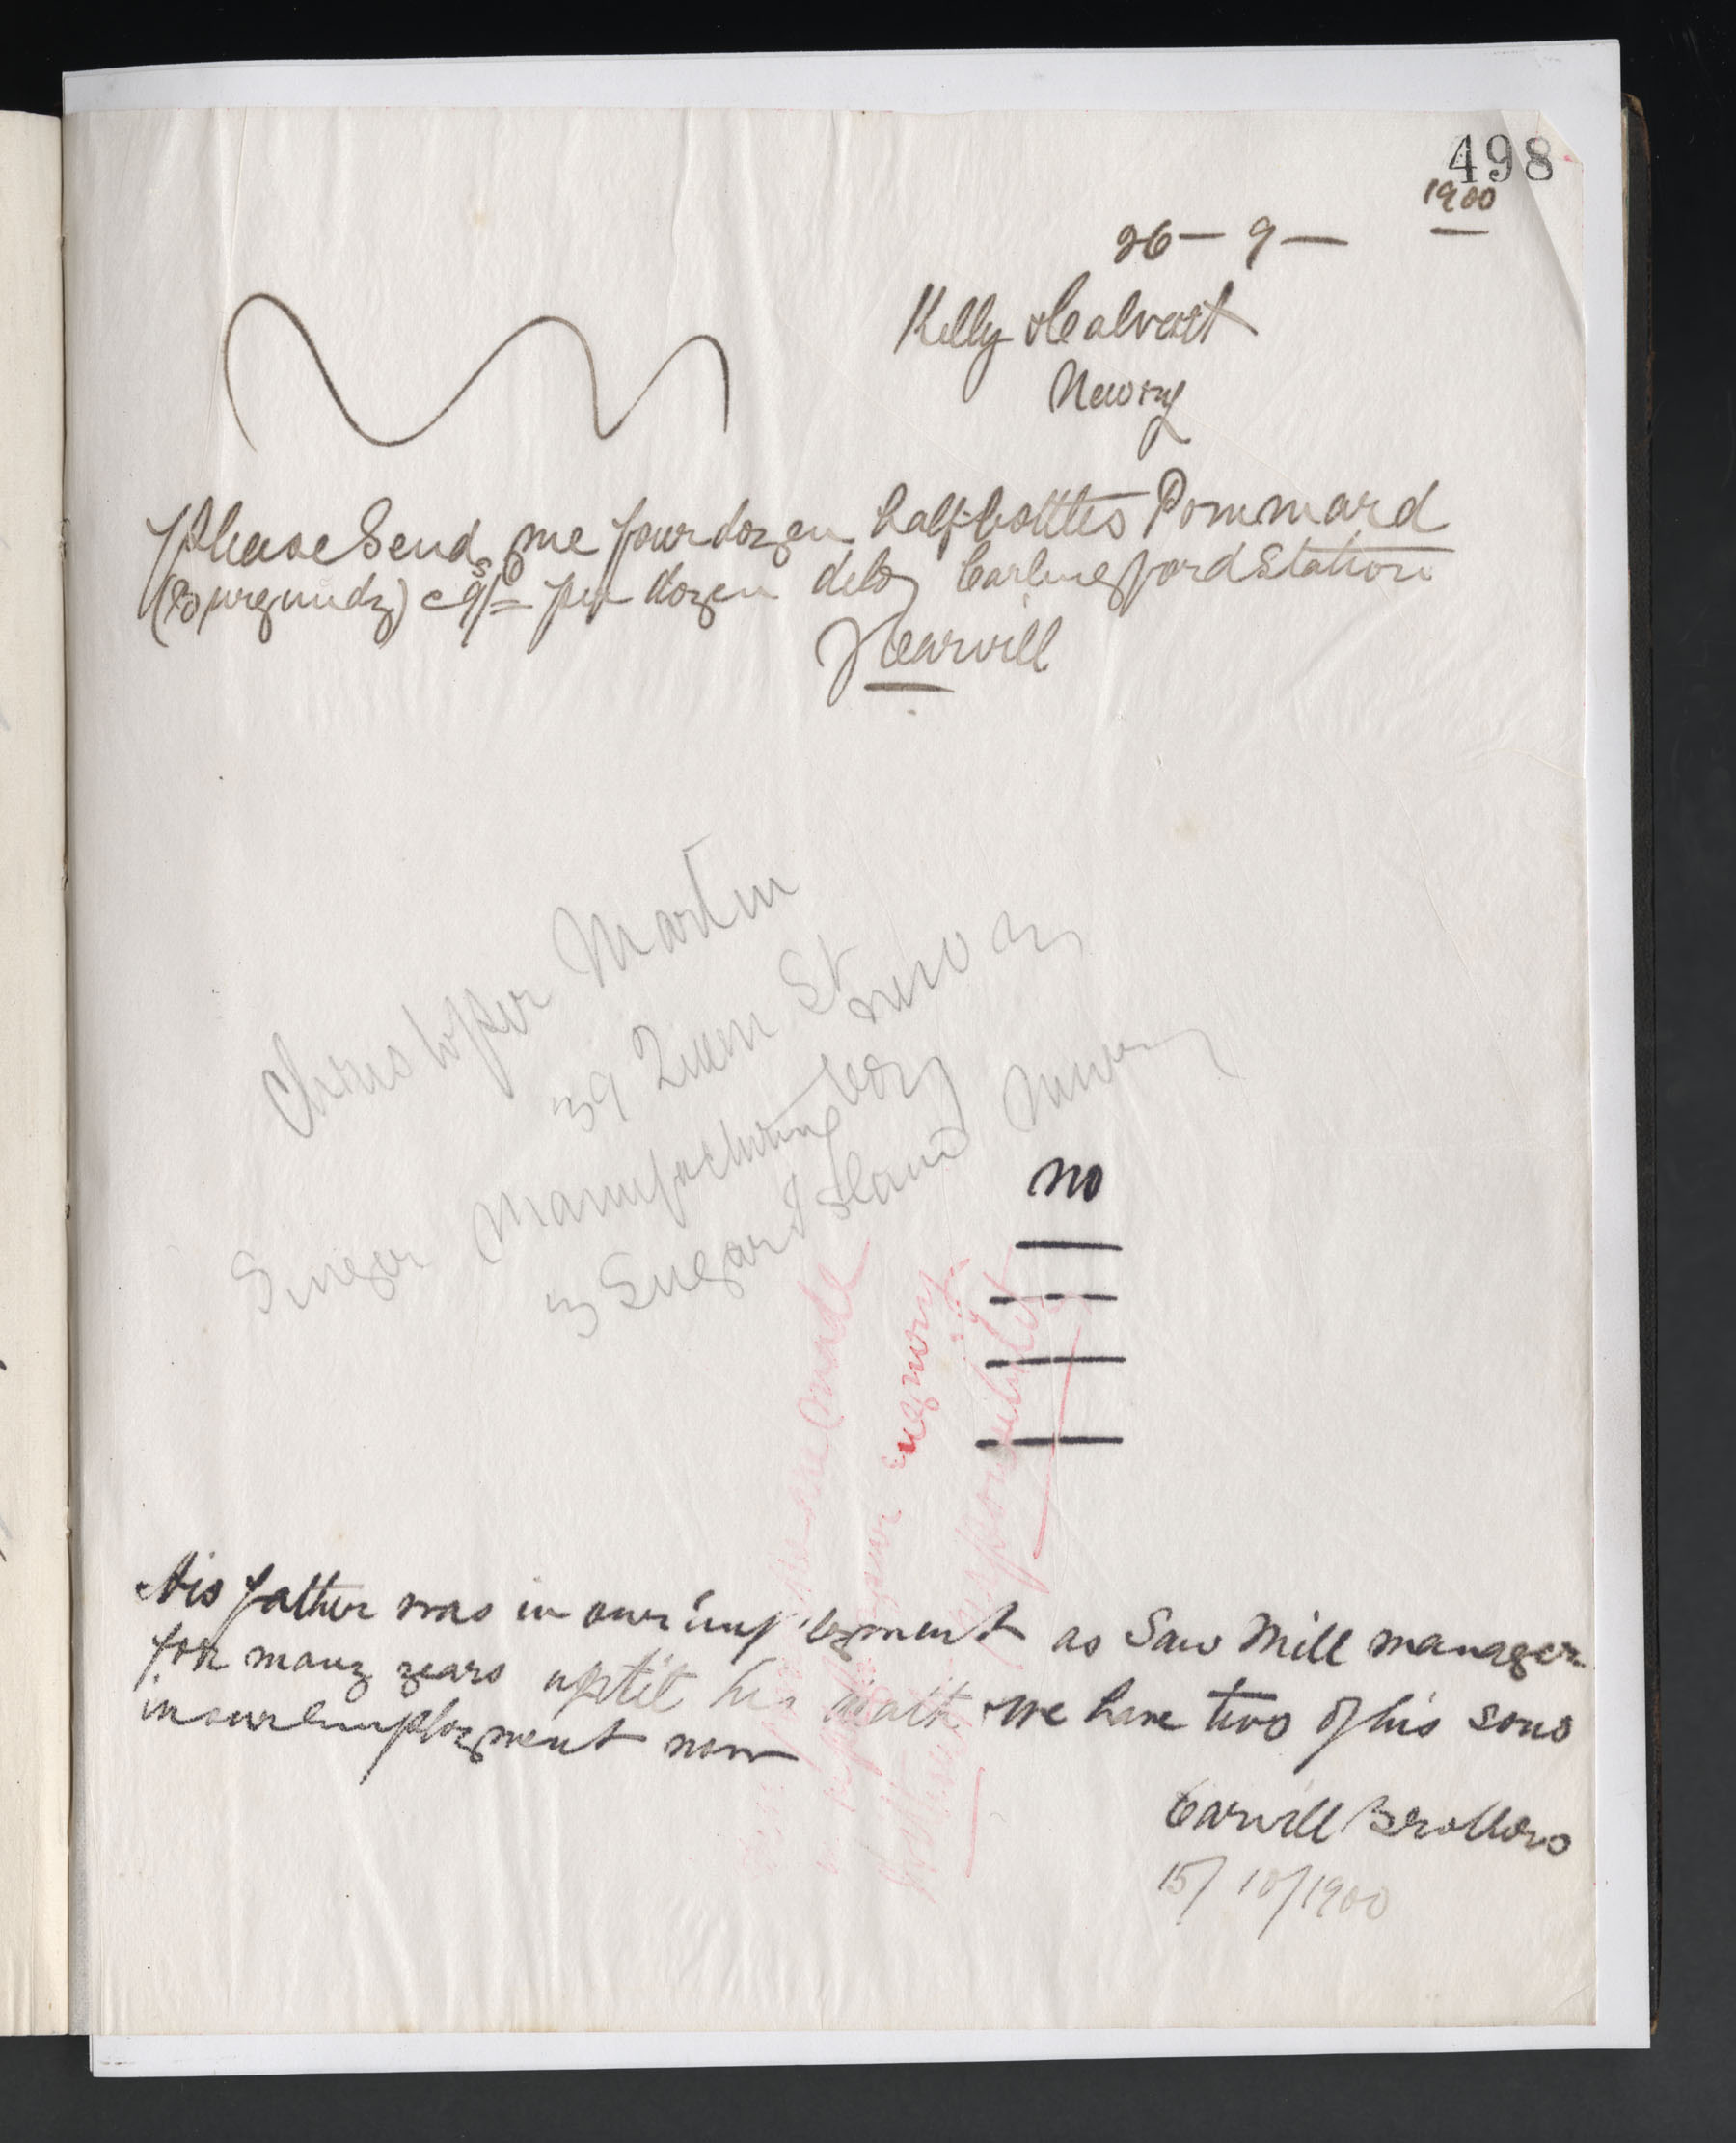 498
1900
26 - 9 -
Kelly & Calvert
Newry
Please Send me four dozen half-bottles Pommard
(Burgundy) 9/= per dozen deld Carlingford Station
F Carvill
Christopher Martin
39 Queen St Newry
Singer Manufacturing Coy
3 Sugar Island Newry
no
made
your inquiry
responsibility
His father was in our employment as Saw Mill manager
for many years up till his death & we have two of his sons
in our employment now
Carvill Brothers
15/10/1900